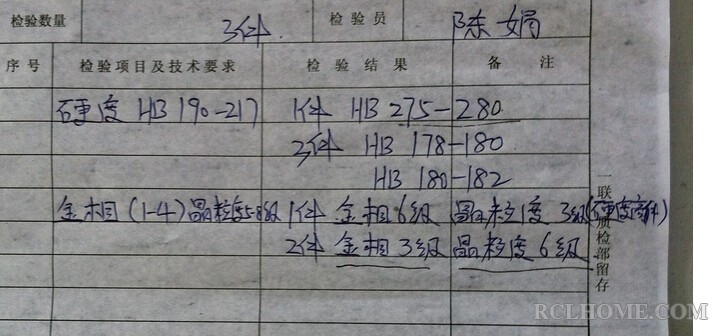 检验数量 3件 检验员 陈娟
序号 检验项目及技术要求 检验结果 备注
硬度 HB 190-217 1件 HB 275-280
3件 HB 178-180
HB 180-182
金相(1-4)晶粒度5-8级 1件 金相6级 晶粒度 3级(硬度高件)
2件 金相3级 晶粒度 6级
一联质检部留存
RCLHOME.COM